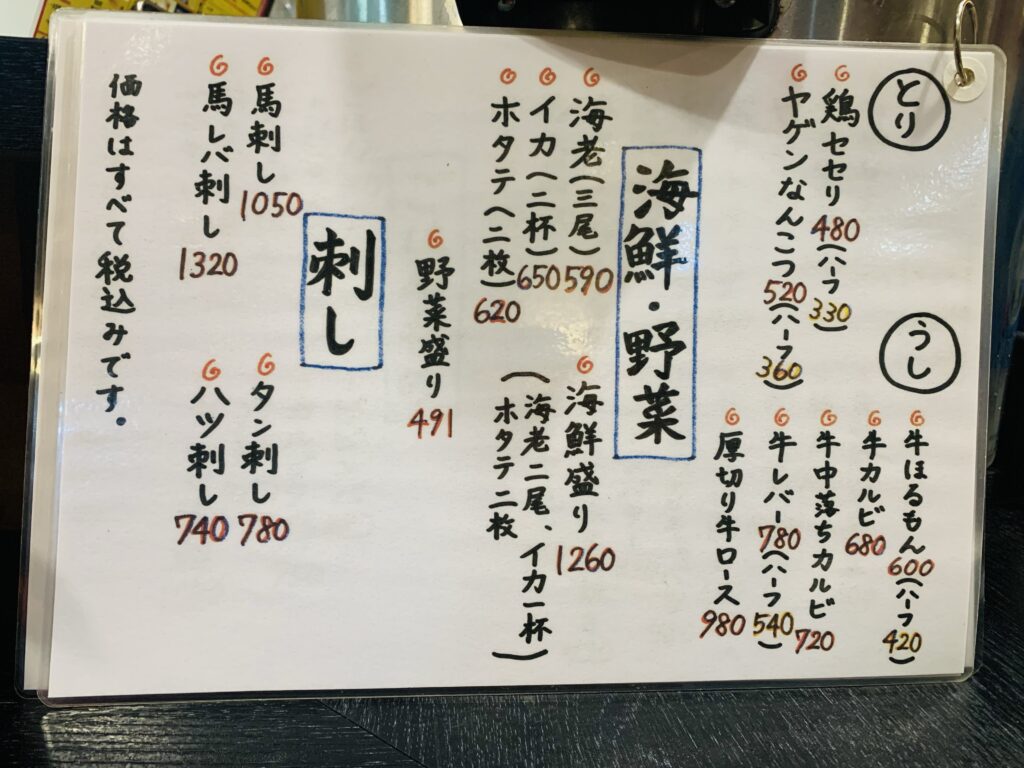 とり
鶏セセリ 480(ハーフ330)
ヤゲンなんこつ 520(ハーフ360)
うし
牛ほるもん 600(ハーフ420)
牛カルビ 680
牛中落ちカルビ 720
牛レバー 780(ハーフ540)
厚切り牛ロース 980
海鮮・野菜
海老(三尾) 590
イカ(二杯) 650
ホタテ(二枚) 620
海鮮盛り 1260
(海老二尾、イカ一杯
ホタテ二枚)
野菜盛り 491
刺し
馬刺し 1050
馬レバ刺し 1320
タン刺し 780
ハツ刺し 740
価格はすべて税込みです.